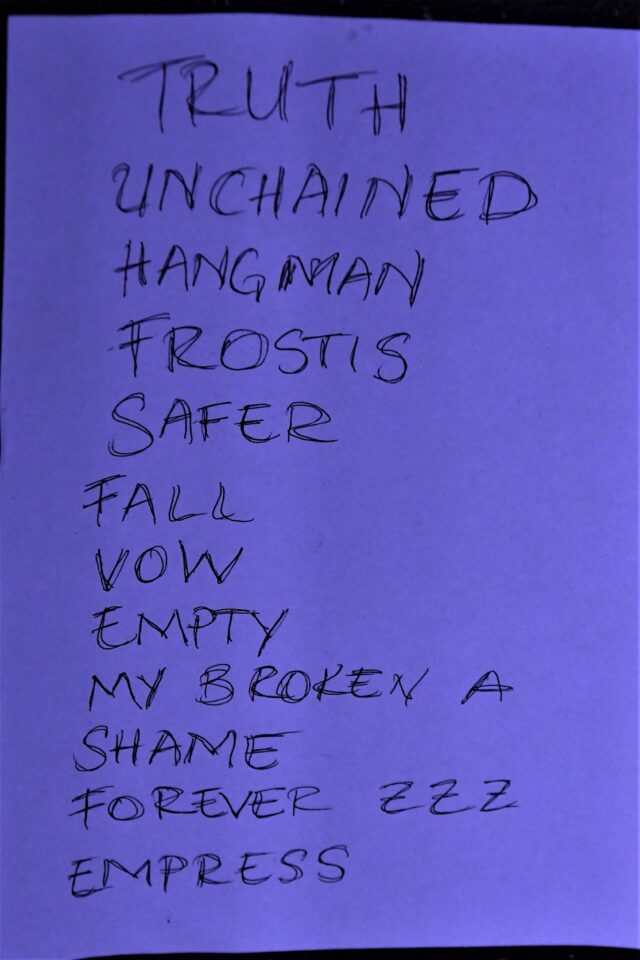 TRUTH
UNCHAINED
HANGMAN
FROSTIS
SAFER
FALL
VOW
EMPTY
MY BROKEN A
SHAME
FOREVER ZZZ
EMPRESS